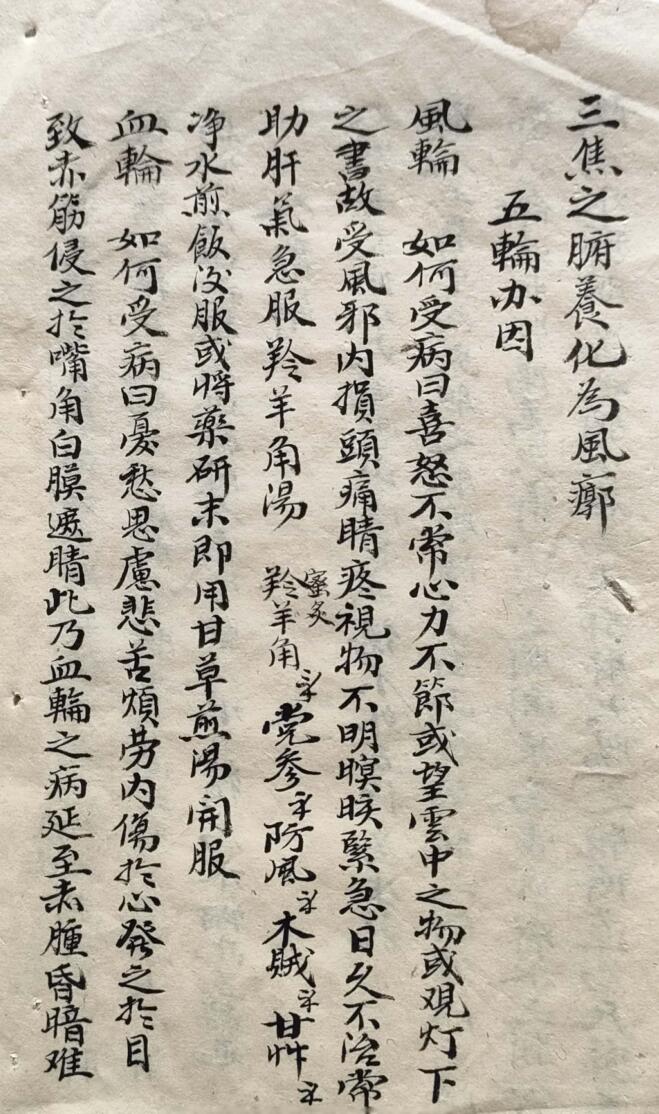 三焦之腑養化為風廓
五輪办因
風輪 如何受病曰喜怒不常心力不節或望雲中之物或观灯下
之書故受風邪内損頭痛睛疼視物不明瞑眹緊急日久不治常
助肝氣急服羚羊角湯 羚羊角蜜炙 党參 防風 木賊 甘艸
净水煎飯後服或将藥研末即用甘草煎湯開服
血輪 如何受病曰憂愁思慮悲苦煩劳内傷於心發之於目
致赤筋侵之於嘴角白膜遮睛此乃血輪之病延至赤腫昏暗难